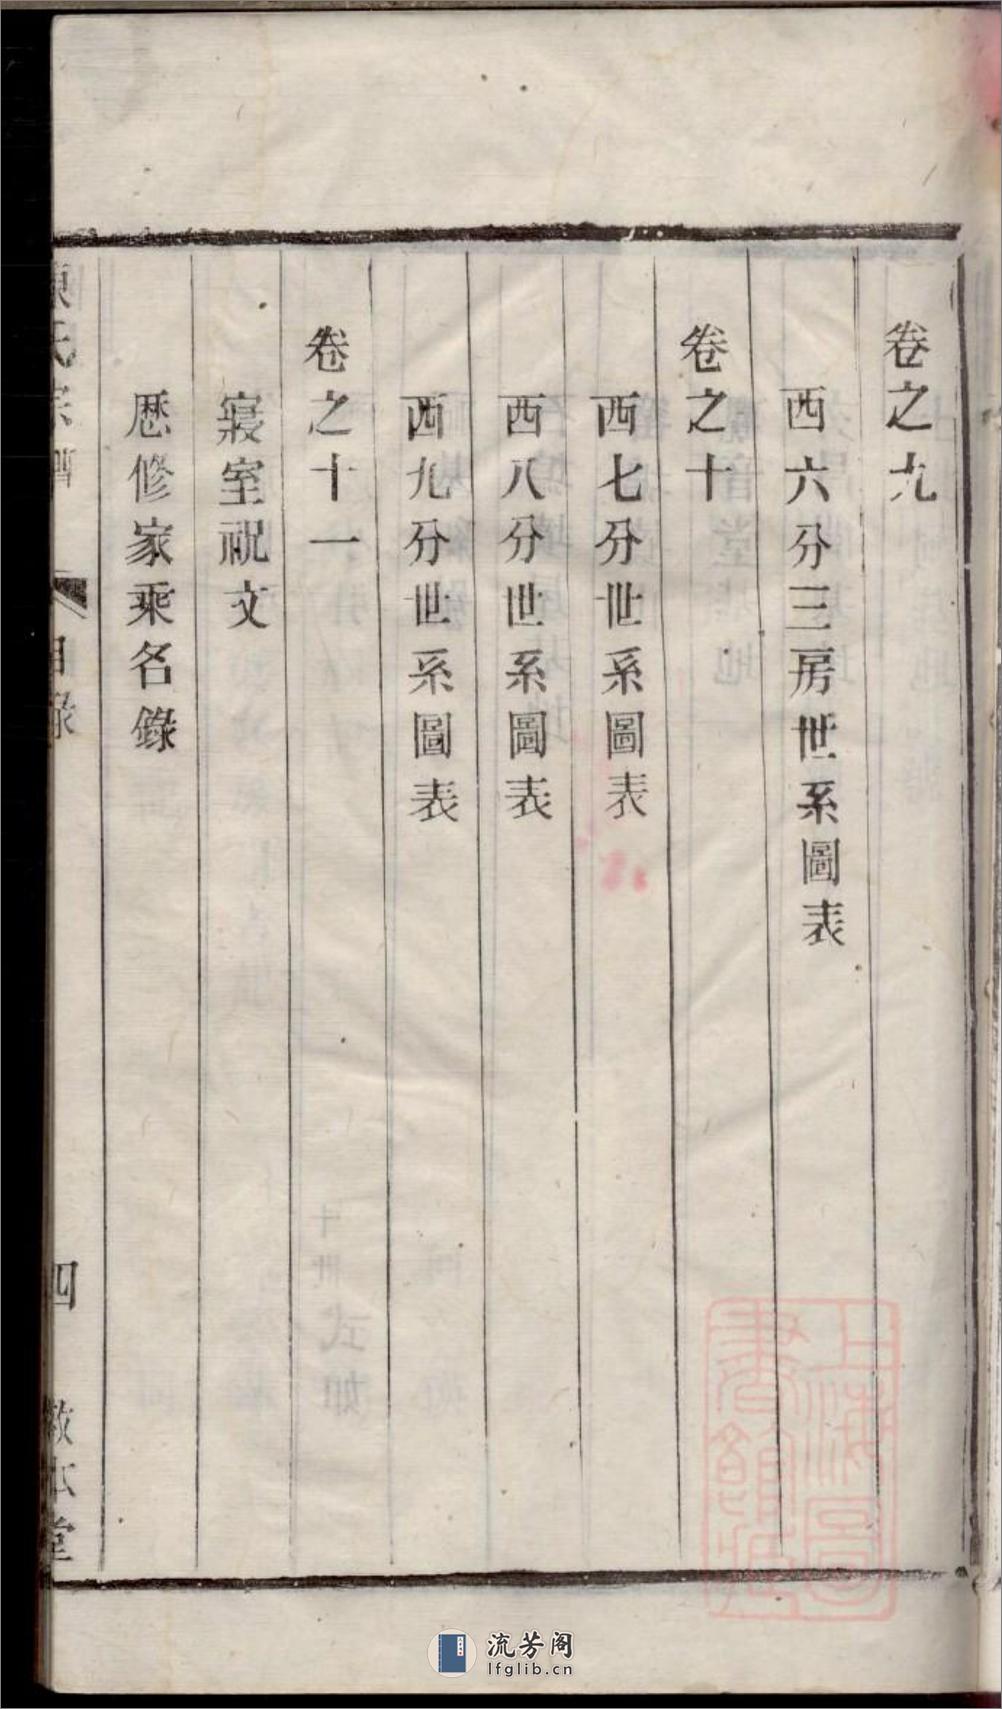 卷之九
西六分三房世系圖表
卷之十
西七分世系圖表
西八分世系圖表
西九分世系圖表
卷之十一
寢室祝文
歷修家乘名錄
氏宗譜
目錄
四
本堂
上海圖書館藏
流芳阁
lfglib.cn